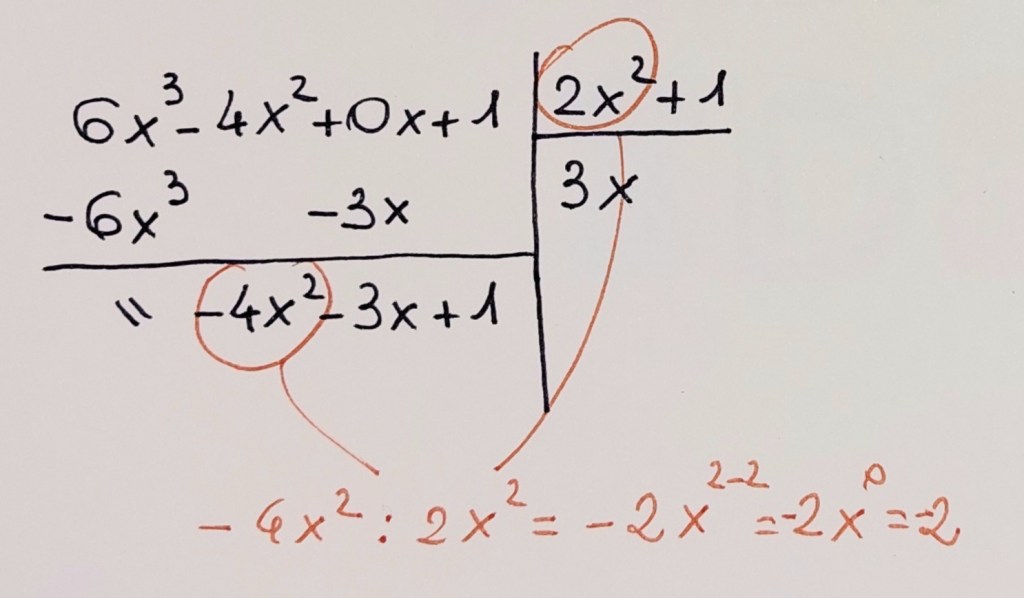 6x³-4x²+0x+1 2x²+1
-6x³ -3x 3x
" -4x²-3x+1
-4x²:2x²=-2x²⁻²=-2x⁰=-2